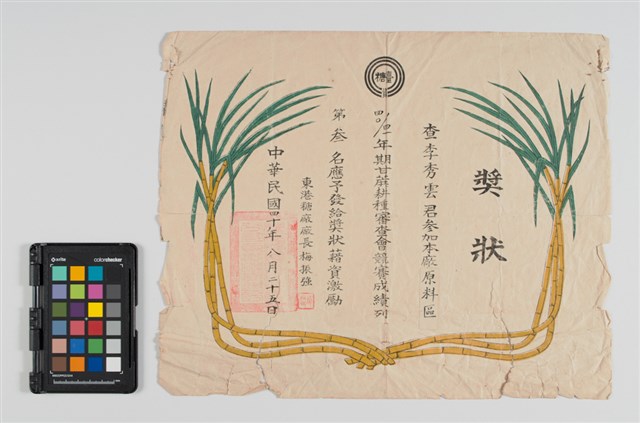 獎狀
查李秀雲君參加本廠原料區
四〇/四一年期甘蔗耕種審查會競賽成績列
第叁名應予發給獎狀藉資激勵
東港糖廠廠長梅振強
中華民國四十年八月二十五日
x-rite colorchecker